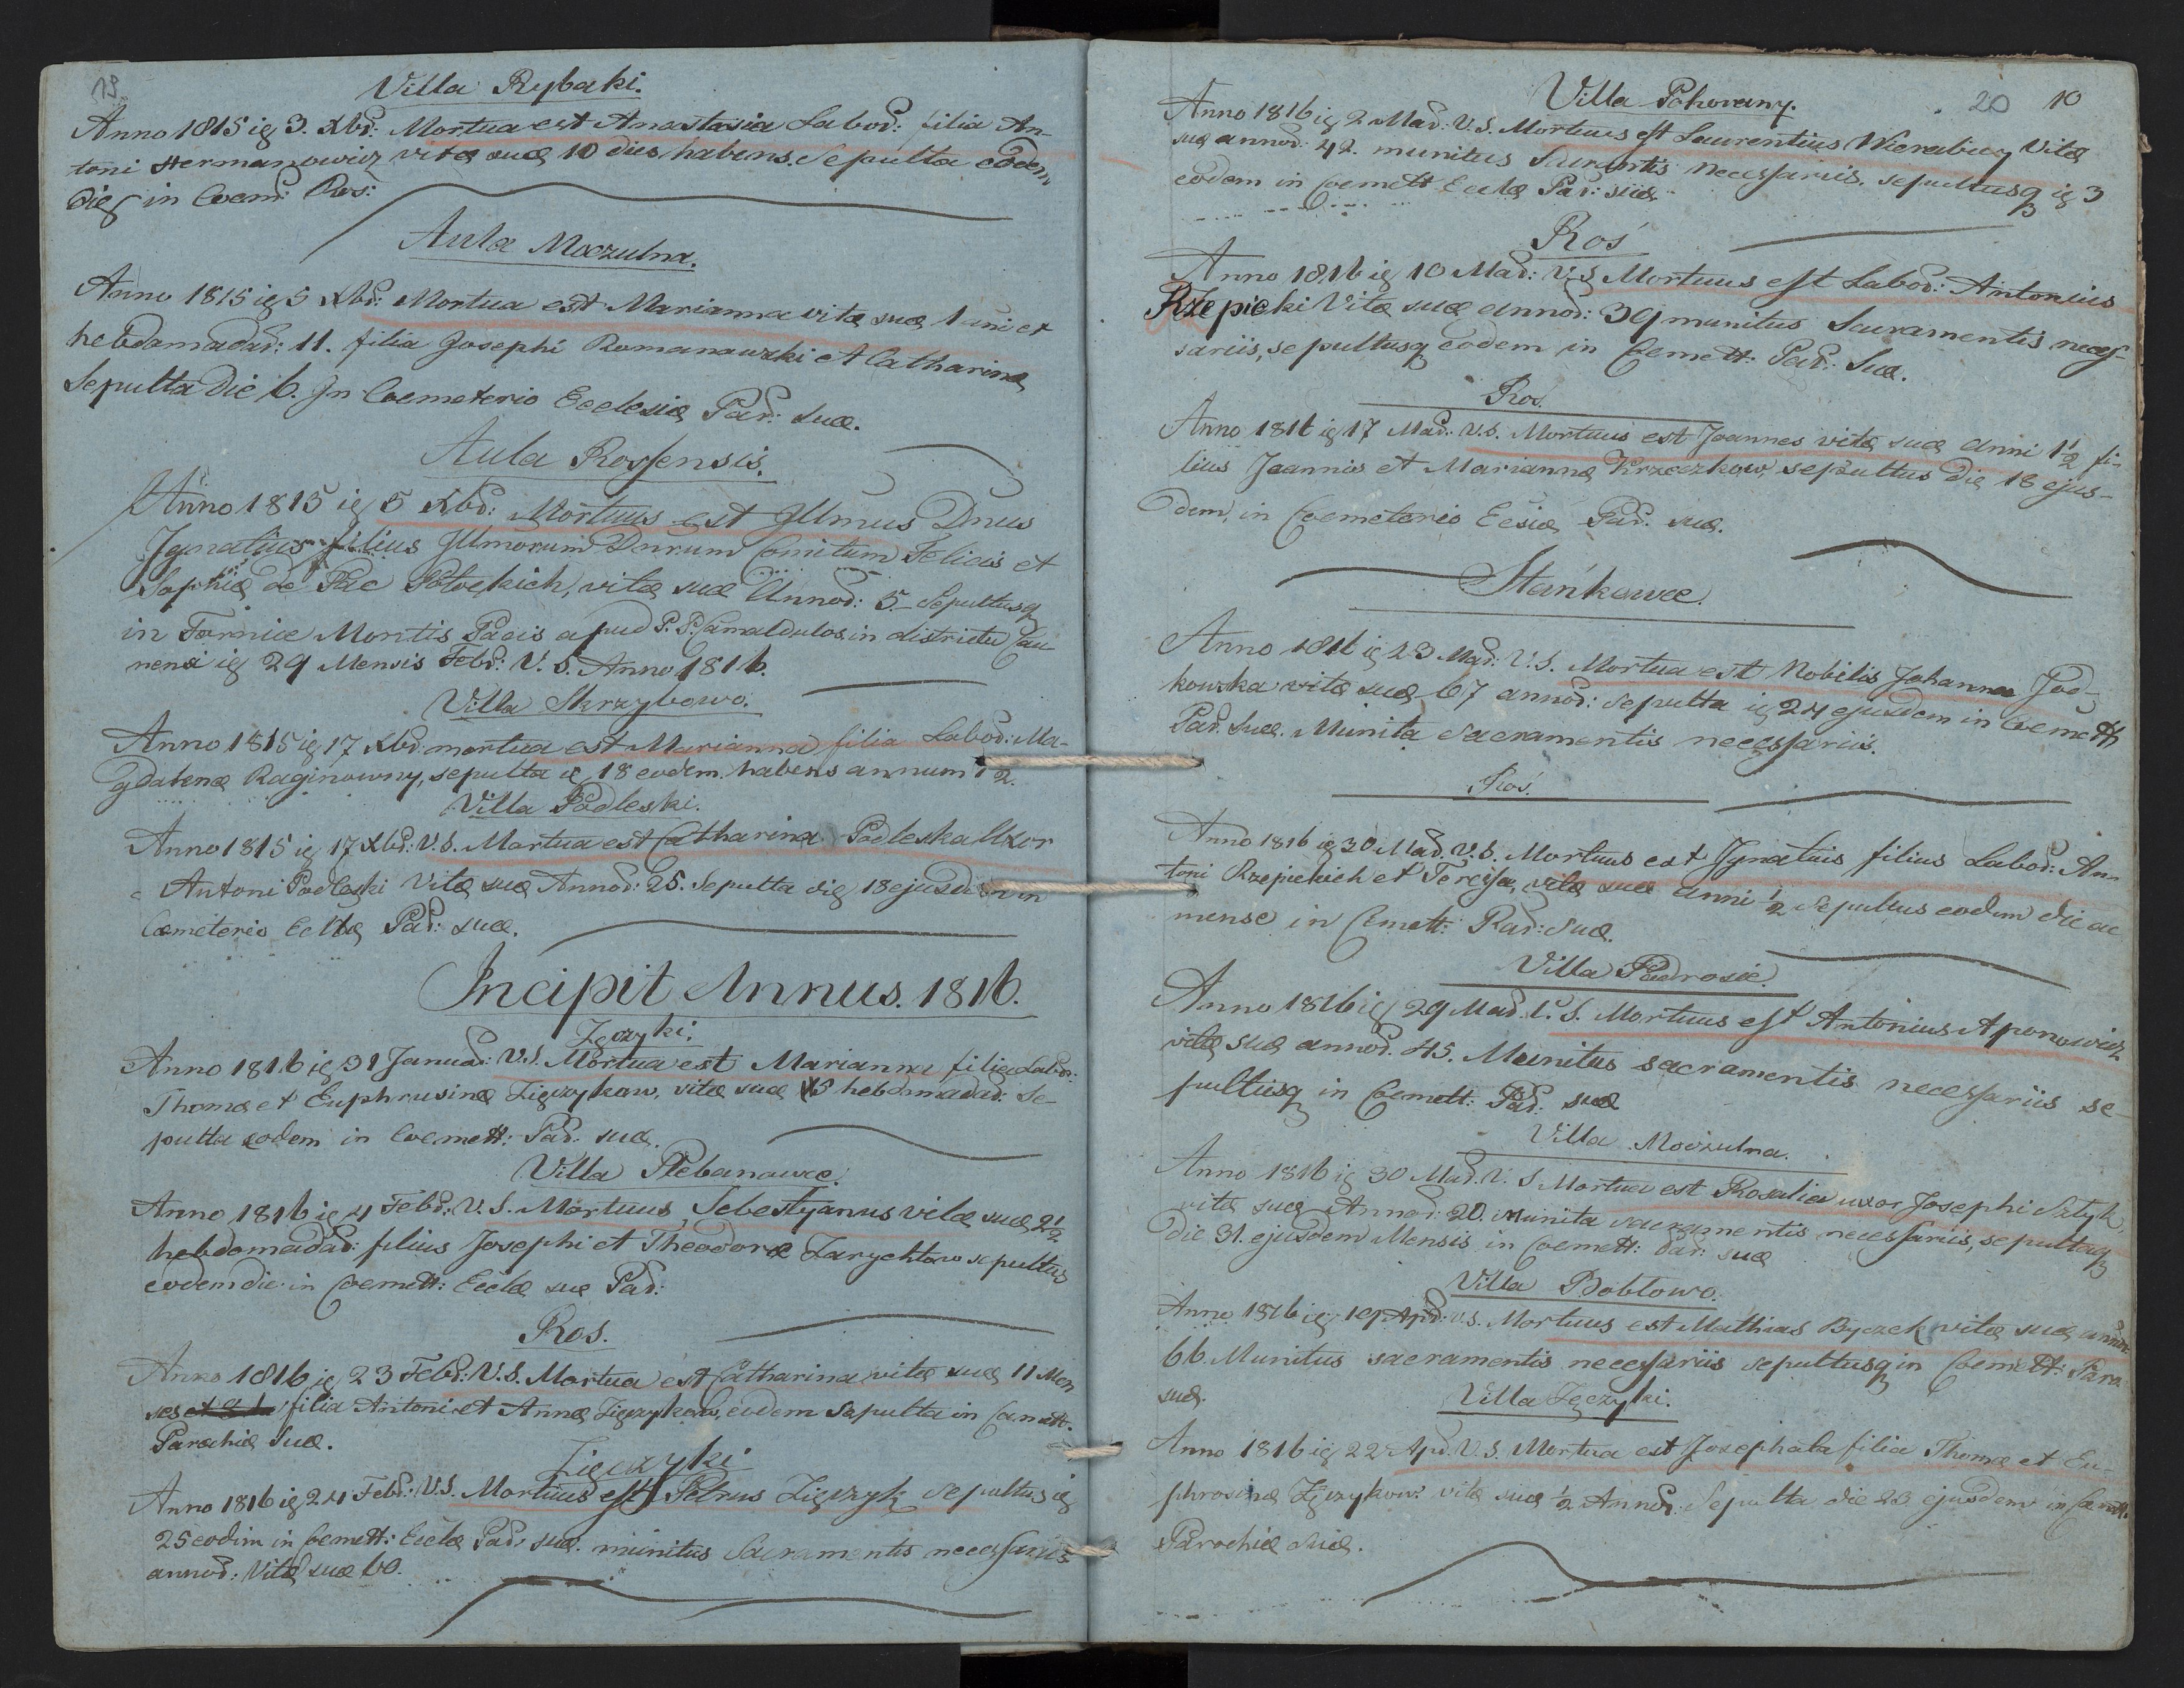 19
Villa Rybaki.
Anno 1815 ię 3. Xbr: Mortua est Anastasia Labor: filia An-
toni Hermanowicz vitæ suæ 10 dies habens. Sepulta eodem
die in Coem: Ros:
Aula Moczulna.
Anno 1815 ię 5 Xbr: Mortua est Marianna vitæ suæ 1 uni et
hebdomadar: 11. filia Josephi Romanawski et Catharinæ
Sepulta Die 6. Jn Coemeterio Ecclesiæ Par: Suæ.
Aula Rossensis.
Anno 1815 ię 5 Xbr: Mortuus est Jllmus Dnus
Jgnatius filius Jllmorum Dnrum Comitum Felicis et
Sophiæ de Pac Potockich, vitæ suæ Annor: 5. Sepultusq
in Fornice Montis Pacis apud P.P. Camaldulos in districtu Cau-
nensi ię 29 Mensis Febr: V. S. Anno 1816.
Villa Skrzybowo.
Anno 1815 ię 17 Xbr: mortua est Marianna filia Labor: Ma-
gdalenæ Raginowny, sepulta ię 18 eodem. habens annum 1/2.
Villa Podleski.
Anno 1815 ię 17 Xbr: V.S. Mortua est Catharina Podleska Uxor
Antoni Podleski Vitæ suæ Annor: 25. Sepulta die 18 ejusdem in
Cæmeterio Ecclæ Par: suæ.
Incipit Annus. 1816.
Zęczyki.
Anno 1816 ię 31 Januar: V.S. Mortua est Marianna filia Labor:
Thomæ et Euphrusinæ Zięczykow, vitæ suæ 3 hebdomadar: Se-
pulta eodem in Coemett: Par: suæ.
Villa Plebanowce.
Anno 1816 ię 4 Febr: V.S. Mortuus Sebestyanus vitæ suæ 2 1/2
hebdomadar: filius Josephi et Theodoræ Zarychtow sepultus
eodem die in Coemett: Ecclæ suæ Par:
Ros.
Anno 1816 ię 23 Febr: V.S. Mortua est Catharina vitæ suæ 11 Men
ses filia Antoni et Annæ Zięczykow, eodem Sepulta in Cæmett.
Parochiæ Suæ.
Zięczyki
Anno 1816 ię 24 Febr: V.S. Mortuus est Petrus Zięczyk sepultus ię
25 eodem in Cemett: Ecclæ Par: suæ. munitus Sacramentis necessariis
annor: Vitæ suæ 60.
20 10
Villa Pokorany.
Anno 1816 ię 2 Mar: V.S. Mortuus est Laurentius Wierabiey Vitæ
suæ annor: 42. munitus Sacrmntis necessariis. sepultusq ię 3
eodem in Coemett Ecclæ Par: suæ
Roś
Anno 1816 ię 10 Mar: V.S Mortuus est Labor: Antonius
Rzepicki Vitæ suæ annor: 39 munitus Sacramentis neces-
sariis, sepultusq eodem in Cemett: Par: Suæ.
Roś.
Anno 1816 ię 17 Mar: V.S. Mortuus est Joannes vitæ suæ anni 1 1/2 fi-
lius Joannis et Mariannæ Krzeczkow, sepultus die 18 ejus-
dem, in Coemeterio Ecsiæ Par. suæ.
Stańkowce.
Anno 1816 ię 23 Mar: V.S. Mortua est Nobilis Johanna Jod-
kowska vitæ suæ 67 annor: sepulta ię 24 ejusdem in Coemett
Par. Suæ. Munita Sacramentis necessariis.
Roś.
Anno 1816 ię 30 Mar. V.S. Mortuus est Jgnatius filius Labor: An-
toni Rzepickich et Teressæ, vitæ suæ anni 1/2 sepultus eodem die ac
mense in Cmett: Par: Suæ.
Villa Podrosie.
Anno 1816 ię 29 Mar. V. S. Mortuus est Antonius Aponowicz
vitæ suæ annor. 45. Munitus sacramentis necessariis se-
pultusq in Coemett: Par: suæ
Villa Moczulna.
Anno 1816 ię 30 Mar. V. S Mortua est Rosalia uxor Josephi Sztyk,
vitæ suæ Annor: 20. munita sacramentis necessariis, sepultaq
die 31. ejusdem Mensis in Coemett: Par: suæ
Villa Bobtowo.
Anno 1816 ię 19 Apr: V.S. Mortuus est Mathias Byczek vitæ suæ annor
66. Munitus sacramentis necessariis sepultusq in Coemett: Paro
suæ.
Villa Zęczyki.
Anno 1816 ię 22 Apr. V.S. Mortua est Josephata filia Thomæ et Eu-
phrosinæ Zięczykow. vitæ suæ 1/2 Annor. Sepulta die 23 ejusdem in Cæmett.
Parochiæ Suæ.